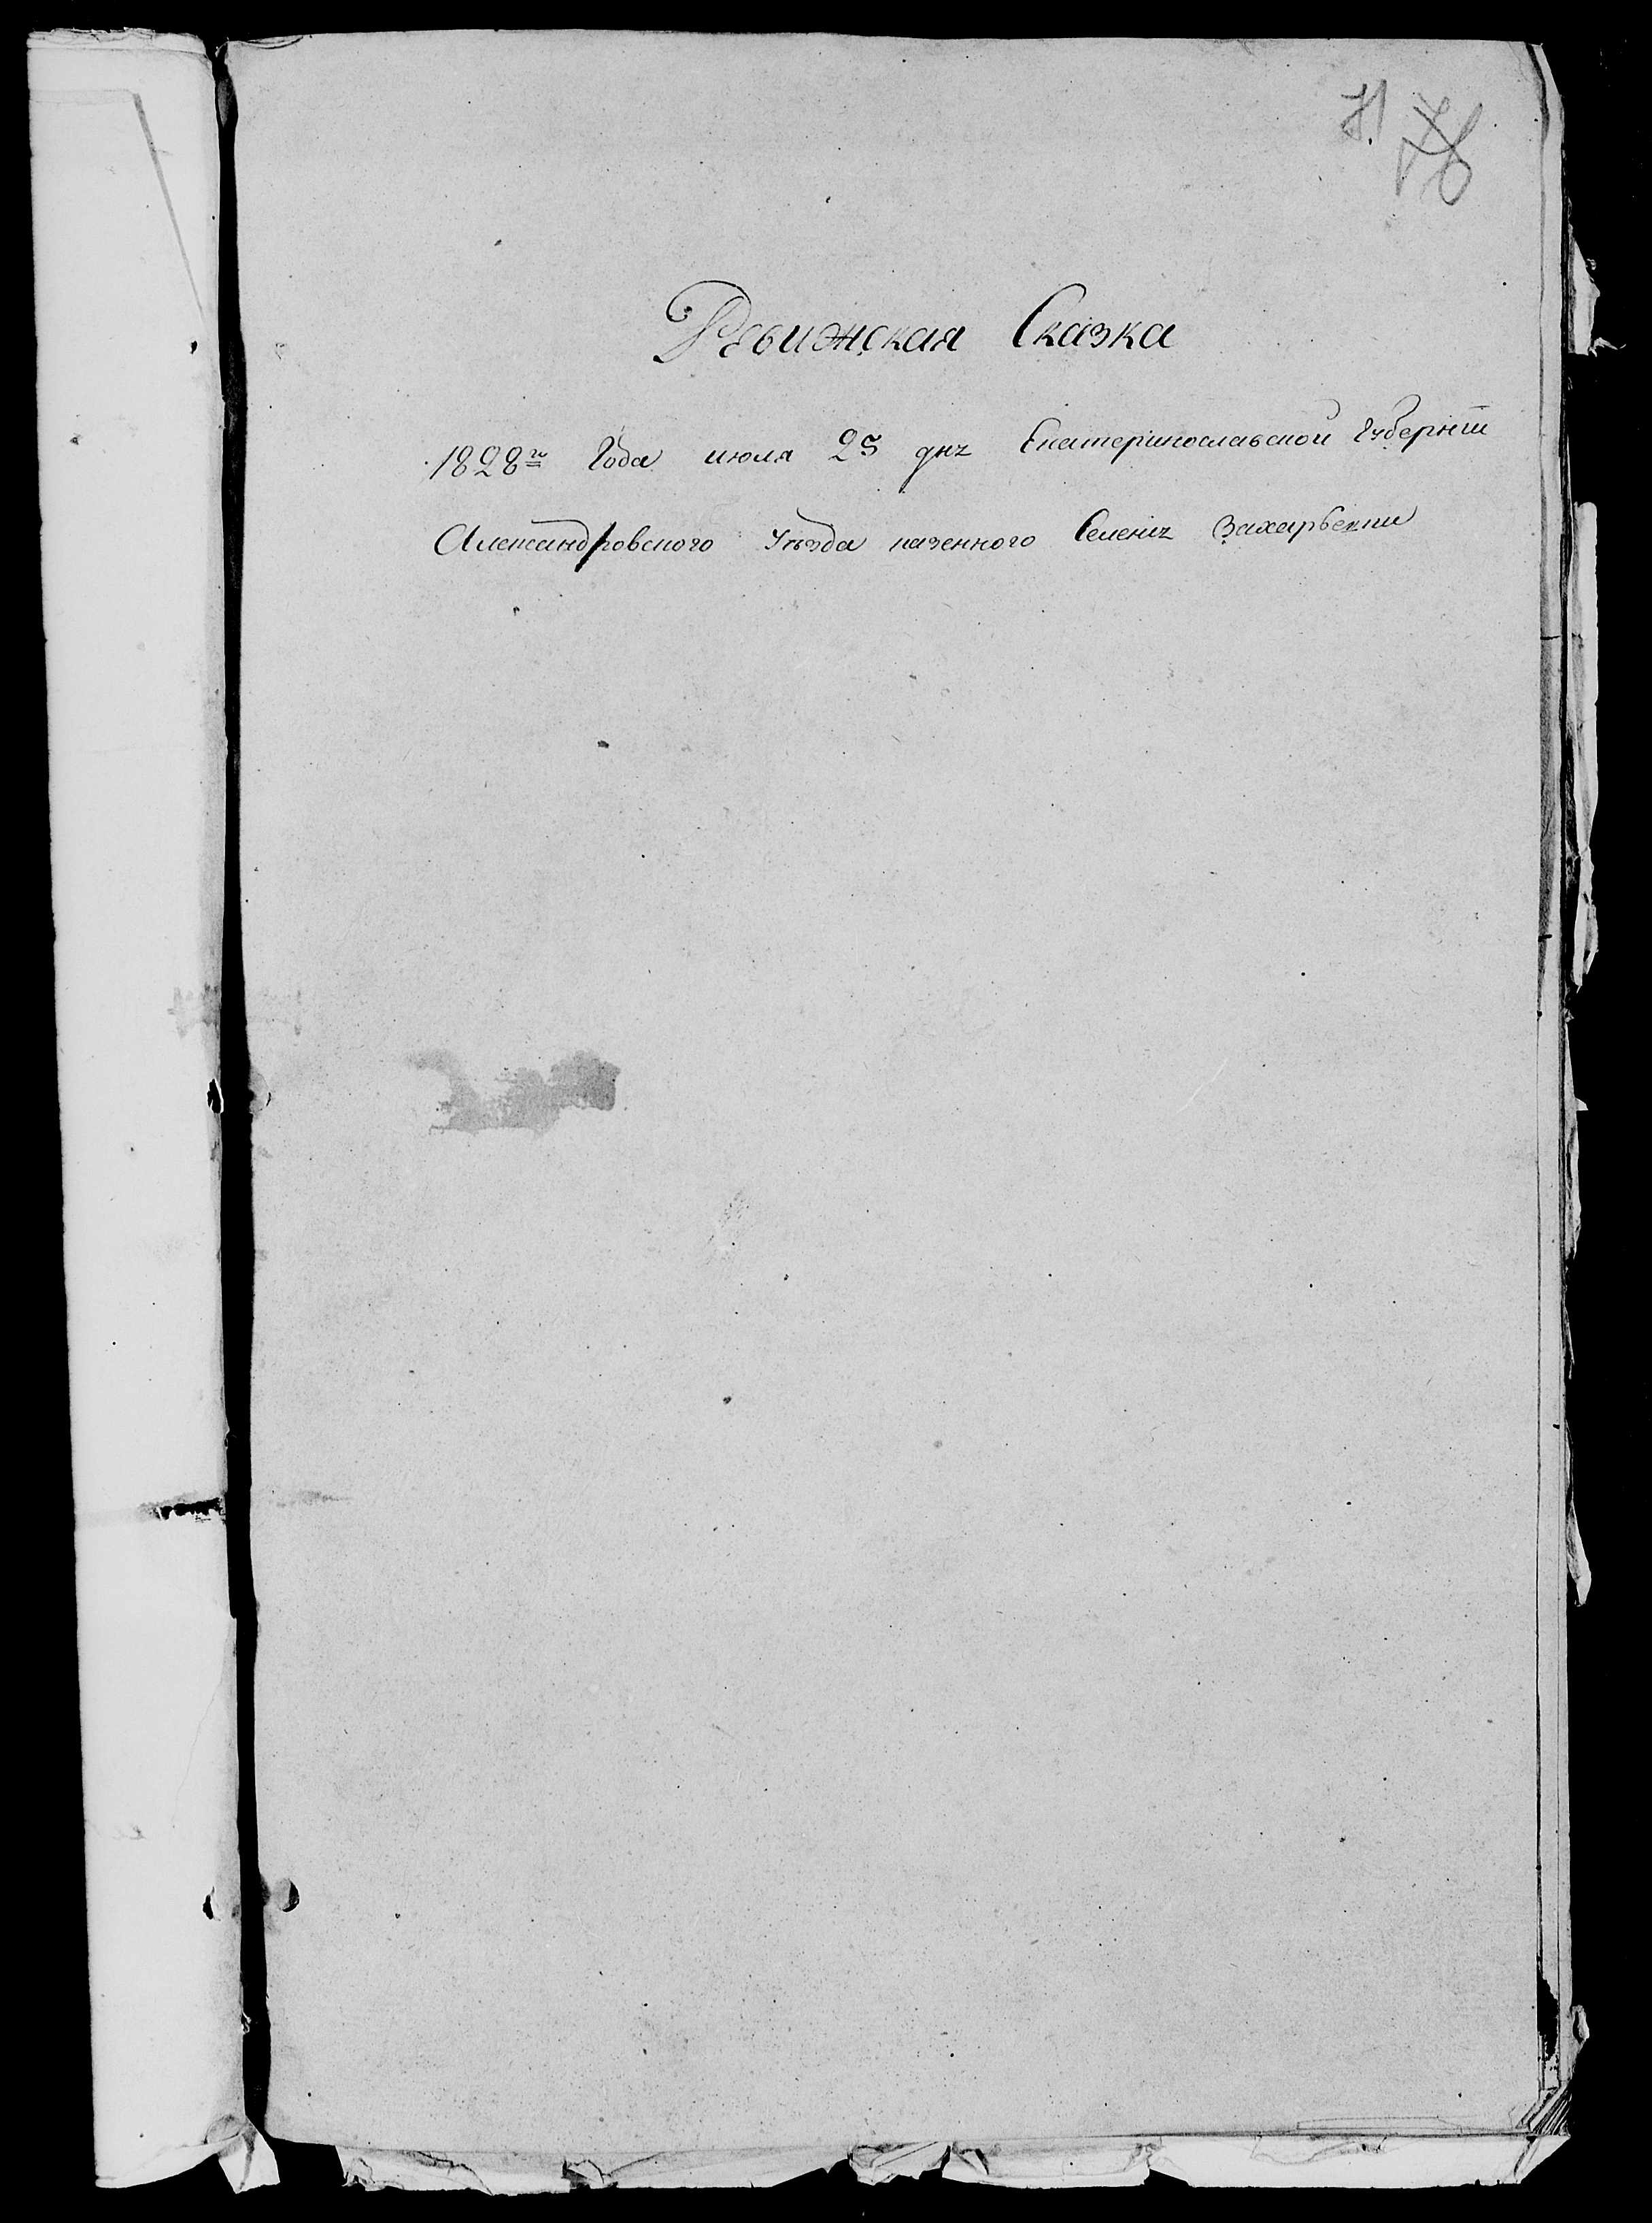 71 78
Ревижская Сказка
1828го Года июля 25 дня Екатеринославской Губернiи
Александровского Уѣзда казенного Селенiя Захарьевки